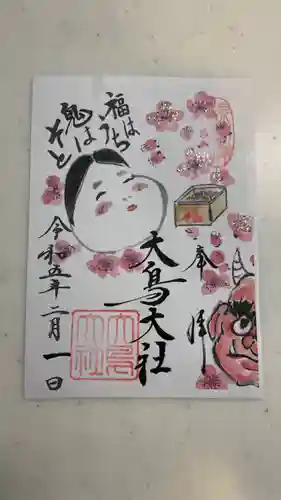 福はうち
鬼は
そと
奉拝
大鳥大社
大鳥
大社
令和五年二月一日